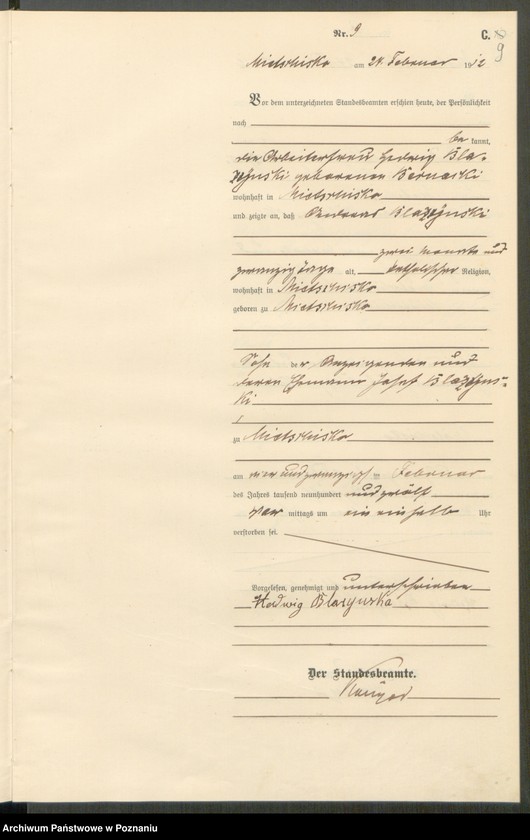 Nr. 9 C. 9
Mietschisko am 24. Februar 1912
Vor dem unterzeichneten Standesbeamten erschien heute, der Persönlichkeit
nach
be kannt,
die Arbeiterfrau Hedwig Bla-
zynski geborenen Bernacki
wohnhaft in Mietschisko
und zeigte an, daß Andreas Blazynski
zwei Monate und
zwanzig Tage alt, katholischer Religion,
wohnhaft in Mietschisko
geboren zu Mietschisko
Sohn der Anzeigenden und
deren Ehemann Josef Blazyns-
ki
zu Mietschisko
am vierundzwanzigsten Februar
des Jahres tausend neunhundert und zwölf
Vor mittags um ein einhalb Uhr
verstorben sei.
Vorgelesen, genehmigt und unterschrieben
Hedwig Blazynska
Der Standesbeamte.
Archiwum Państwowe w Poznaniu